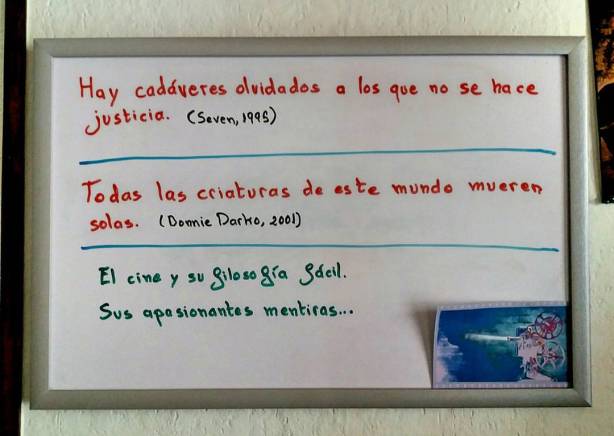 Hay cadáveres olvidados a los que no se hace
justicia. (Seven, 1995)
Todas las criaturas de este mundo mueren
solas. (Donnie Darko, 2001)
El cine y su filosofía fácil.
Sus apasionantes mentiras...